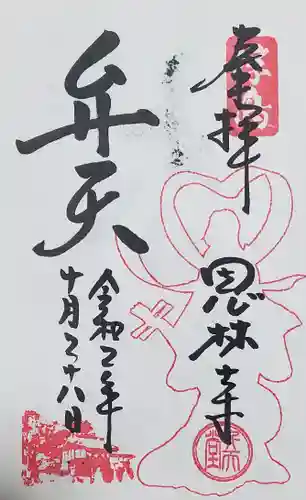 奉拝
恩林寺
弁天
令和二年
十月二十八日